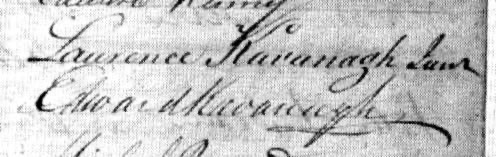 Laurence Kavanagh Junr
Edward Kavanagh